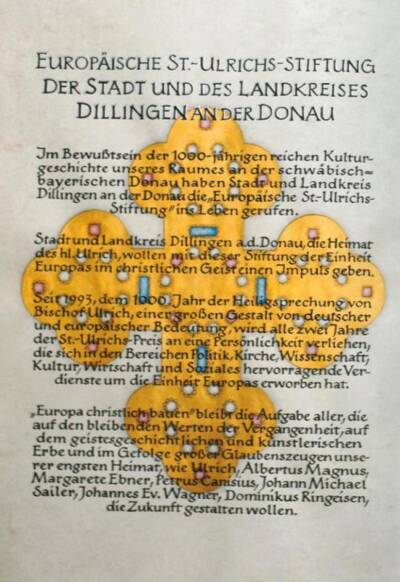 EUROPÄISCHE ST.-ULRICHS-STIFTUNG
DER STADT UND DES LANDKREISES
DILLINGEN AN DER DONAU
Im Bewußtsein der 1000-jährigen reichen Kultur-
geschichte unseres Raumes an der schwäbisch=
bayerischen Donau haben Stadt und Landkreis
Dillingen an der Donau die „Europäische St.-Ulrichs-
Stiftung" ins Leben gerufen.
Stadt und Landkreis Dillingen a.d. Donau, die Heimat
des hl. Ulrich, wollen mit dieser Stiftung der Einheit
Europas im christlichen Geist einen Impuls geben.
Seit 1993, dem 1000. Jahr der Heiligsprechung von
Bischof Ulrich, einer großen Gestalt von deutscher
und europäischer Bedeutung, wird alle zwei Jahre
der St.-Ulrichs-Preis an eine Persönlichkeit verliehen,
die sich in den Bereichen Politik, Kirche, Wissenschaft,
Kultur, Wirtschaft und Soziales hervorragende Ver-
dienste um die Einheit Europas erworben hat.
„Europa christlich bauen" bleibt die Aufgabe aller, die
auf den bleibenden Werten der Vergangenheit, auf
dem geistesgeschichtlichen und künstlerischen
Erbe und im Gefolge großer Glaubenszeugen unse-
rer engsten Heimat, wie Ulrich, Albertus Magnus,
Margarete Ebner, Petrus Canisius, Johann Michael
Sailer, Johannes Ev. Wagner, Dominikus Ringeisen,
die Zukunft gestalten wollen.